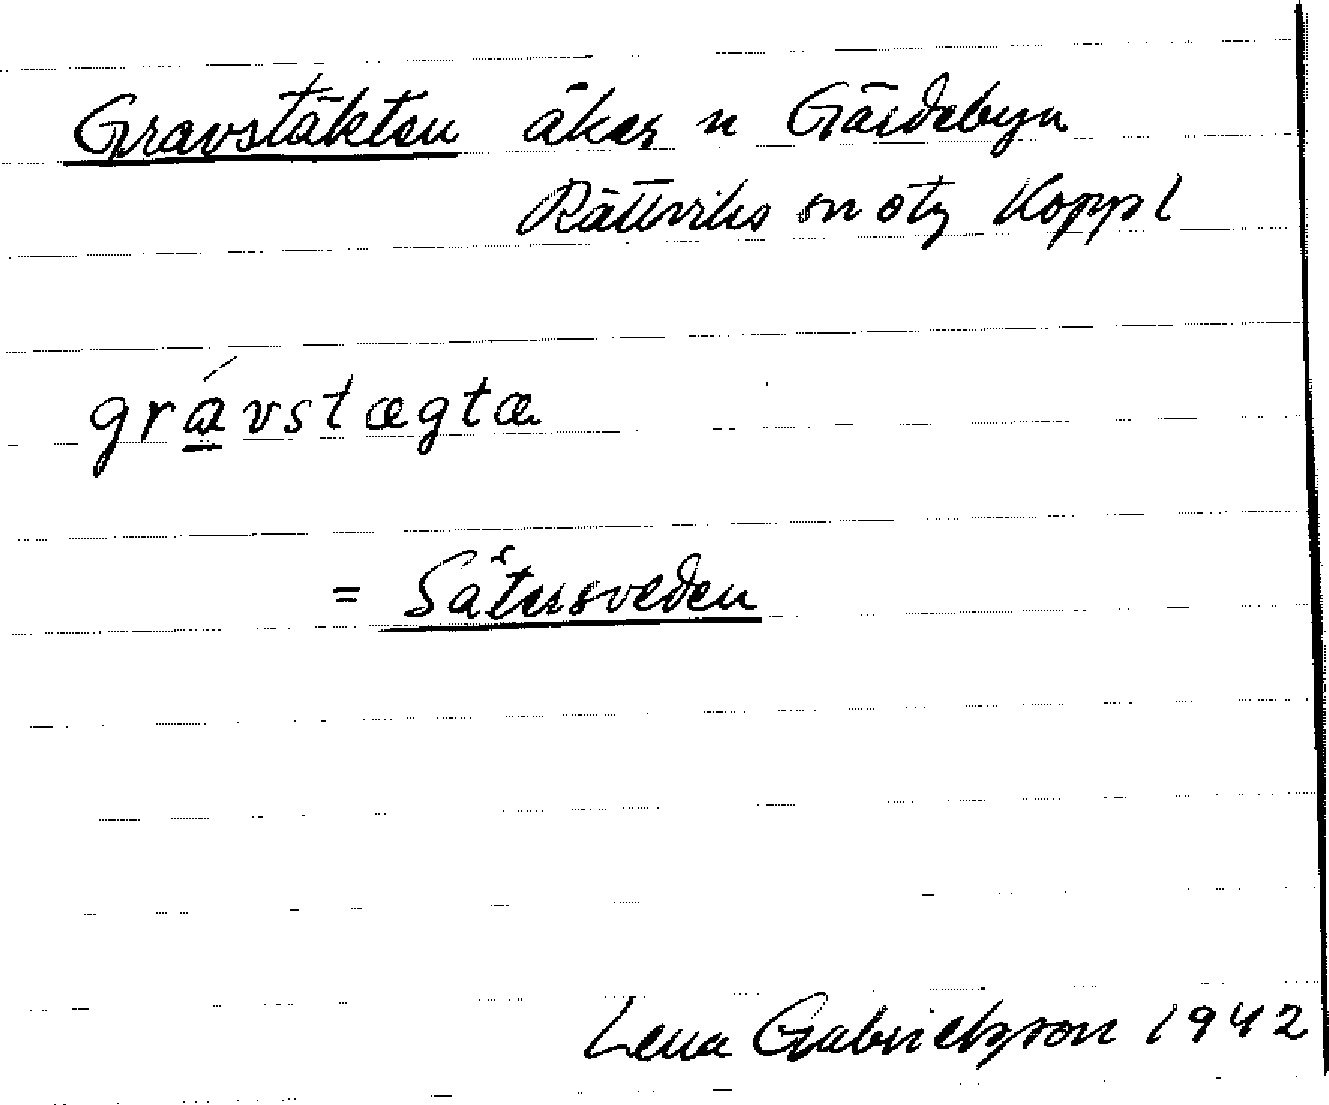 Gravstäkten åker n Gärdebyn
Rättviks sn o tg Koppl
grávstægtæ
= Sätersveden
Lena Gabrielsson 1942